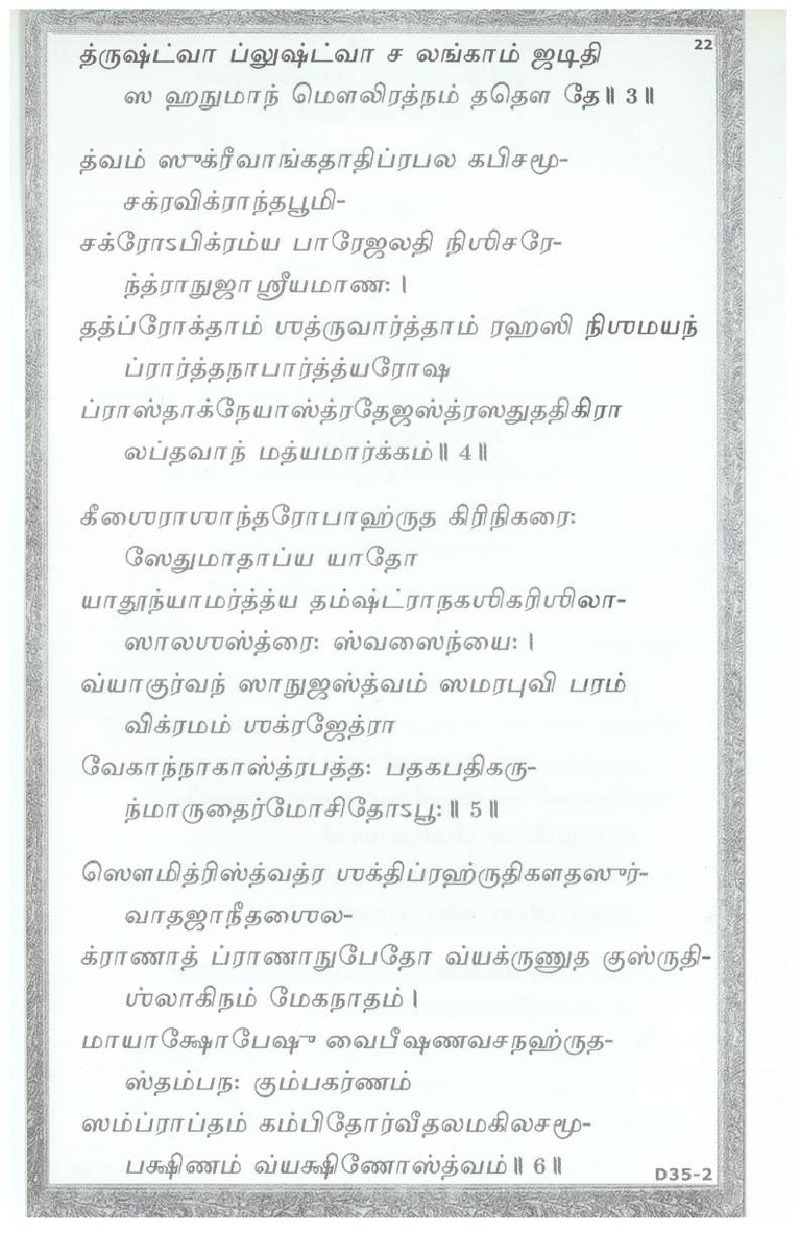 22
த்ருஷ்ட்வா ப்லுஷ்ட்வா ச லங்காம் ஜடிதி
ஸ ஹநுமாந் மௌலிரத்நம் ததௌ தே॥ 3॥
த்வம் ஸுக்ரீவாங்கதாதிப்ரபல கபிசமூ-
சக்ரவிக்ராந்தபூமி-
சக்ரோऽபிக்ரம்ய பாரேஜலதி நிஶிசரே-
ந்த்ராநுஜாஶ்ரீயமாண: ।
தத்ப்ரோக்தாம் ஶத்ருவார்த்தாம் ரஹஸி நிஶமயந்
ப்ரார்த்தநாபார்த்த்யரோஷ
ப்ராஸ்தாக்நேயாஸ்த்ரதேஜஸ்த்ரஸதுததிகிரா
லப்தவாந் மத்யமார்க்கம்॥ 4॥
கீஶைராஶாந்தரோபாஹ்ருத கிரிநிகரை:
ஸேதுமாதாப்ய யாதோ
யாதூந்யாமர்த்த்ய தம்ஷ்ட்ராநகஶிகரிஶிலா-
ஸாலஶஸ்த்ரை: ஸ்வஸைந்யை: ।
வ்யாகுர்வந் ஸாநுஜஸ்த்வம் ஸமரபுவி பரம்
விக்ரமம் ஶக்ரஜேத்ரா
வேகாந்நாகாஸ்த்ரபத்த: பதகபதிகரு-
ந்மாருதைர்மோசிதோऽபூ:॥ 5॥
ஸௌமித்ரிஸ்த்வத்ர ஶக்திப்ரஹ்ருதிகளதஸுர்-
வாதஜாநீதஶைல-
க்ராணாத் ப்ராணாநுபேதோ வ்யக்ருணுத குஸ்ருதி-
ஶ்லாகிநம் மேகநாதம்।
மாயாக்ஷோபேஷு வைபீஷணவசநஹ்ருத-
ஸ்தம்பந: கும்பகர்ணம்
ஸம்ப்ராப்தம் கம்பிதோர்வீதலமகிலசமூ-
பக்ஷிணம் வ்யக்ஷிணோஸ்த்வம்॥ 6॥
D35-2